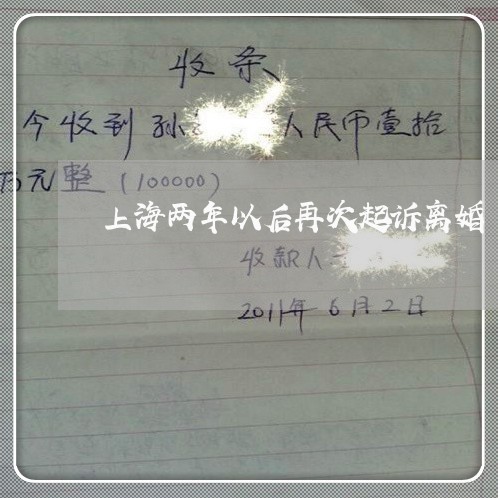 收条
今收到孙 人民币壹拾
万元整(100000)
上海两年以后再次起诉离婚
收款人
2011年6月2日